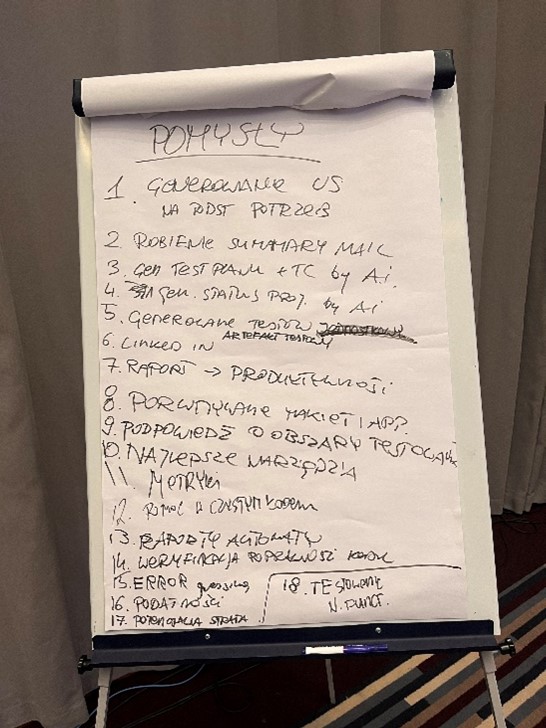 POMYSŁY
1. GENEROWANIE US
NA PODST POTRZEB
2. ROBIENIE SUMMARY MAIL
3. GEN TEST PLANU + TC by A.i.
4. gen. STATUS PROJ. by Ai
5. GENEROWANIE TESTÓW
ARTEFAKT TESTOWY
6. LINKED IN
7. RAPORT → PRODUKTYWNOŚCI
8. PORÓWNYWANIE MAKIET I APP
9. PODPOWIEDŹ O OBSZARY
10. NAJLEPSZE NARZĘDZIA
11. METRYKI
12. POMOC W CZYSTYM KODEM
13. RAPORTY AUTOMATY
14. WERYFIKACJA POPRAWNOŚCI
15. ERROR guessing
16. PODATNOŚCI
17. POTENCJALNA STRATA
18. TESTOWANIE
N. FUNKC.